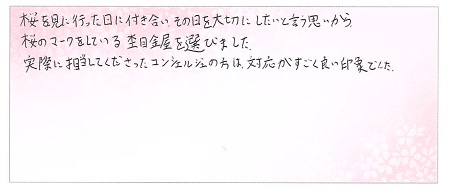 桜を見に行った日に付き合い、その日を大切にしたいと言う思いから
桜のマークをしている杢目金屋を選びました。
実際に担当してくださったコンシェルジュの方は、対応がすごく良い印象でした。